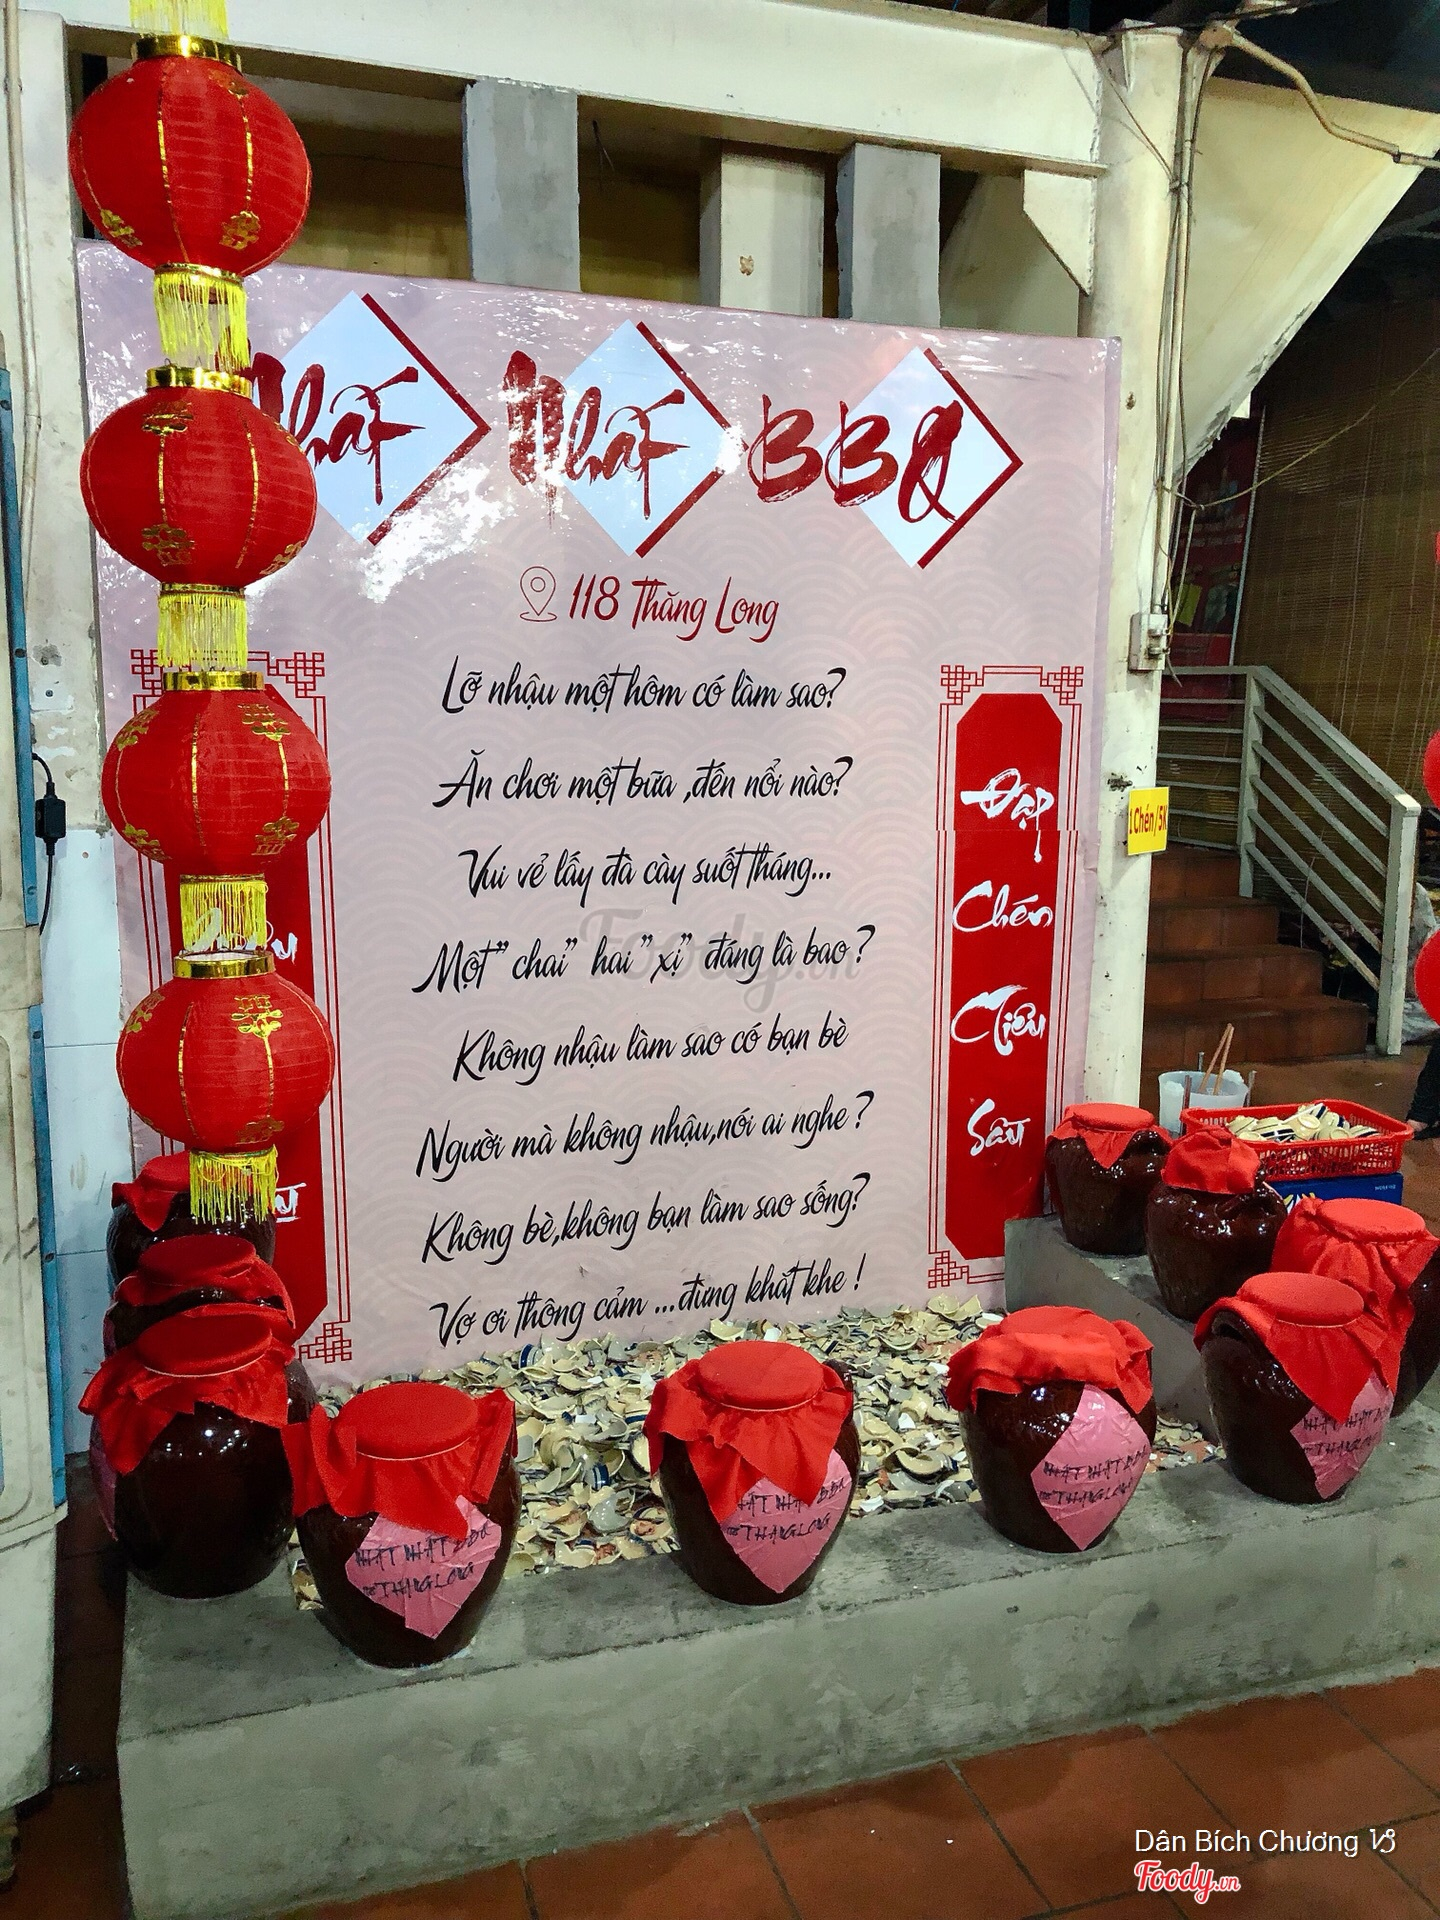 Nhất Nhất BBQ
118 Thăng Long
Lỡ nhậu một hôm có làm sao?
Ăn chơi một bữa ,đến nổi nào?
Vui vẻ lấy đà cày suốt tháng...
Một" chai" hai "xị" đáng là bao?
Không nhậu làm sao có bạn bè
Người mà không nhậu,nói ai nghe?
Không bè,không bạn làm sao sống?
Vợ ơi thông cảm ...đừng khắt khe!
Đập
Chén
Tiêu
Sầu
1Chén/5K
NHẤT NHẤT BBQ
THANGLONG
NHẤT NHẤT BBQ
THANGLONG
NHẤT NHẤT BBQ
THANGLONG
Foody.vn
Dân Bích Chương
Foody.vn